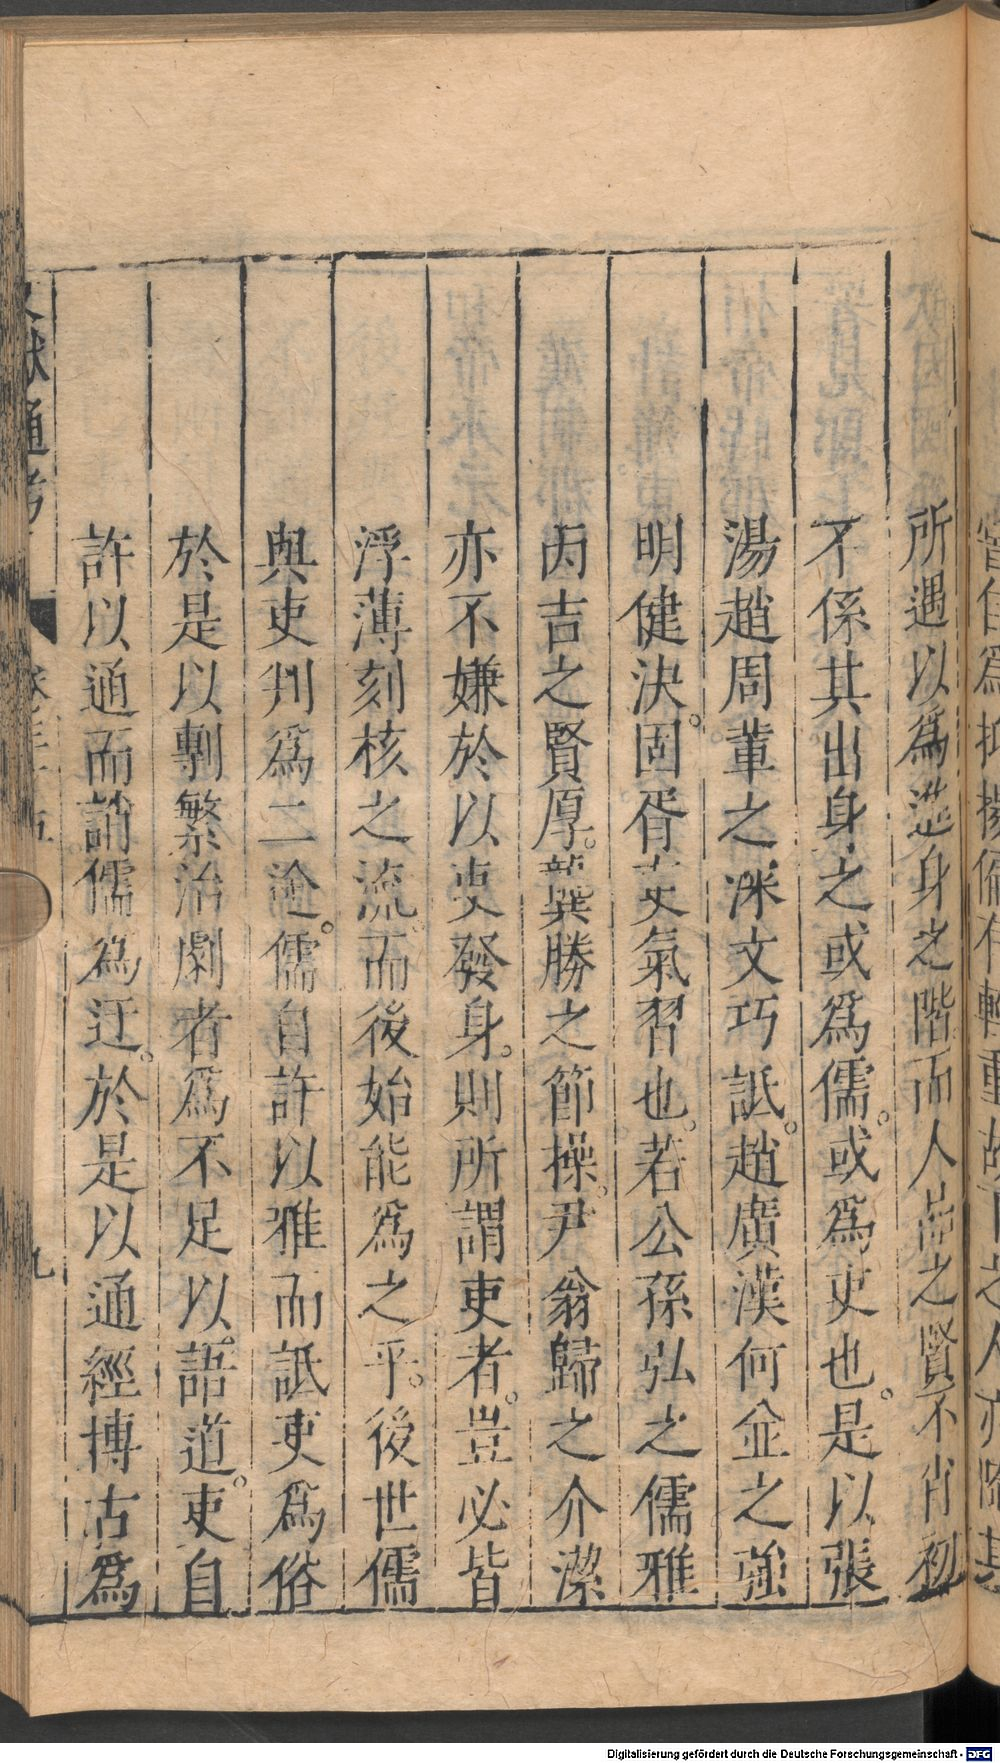 所遇以爲進身之階而人品之賢不肖初
不係其出身之或爲儒。或爲吏也。是以張
湯趙周輩之深文巧詆。趙廣漢何並之強
明健決。固胥吏氣習也。若公孫弘之儒雅
丙吉之賢厚。龔勝之節操。尹翁歸之介潔
亦不嫌於以吏發身。則所謂吏者。豈必皆
浮薄刻核之流。而後始能爲之乎。後世儒
與吏判爲二途。儒自許以雅而詆吏爲俗
於是以剸繁治劇者爲不足以語道。吏自
許以通而誚儒爲迂。於是以通經博古爲
獻通考
九
Digitalisierung gefördert durch die Deutsche Forschungsgemeinschaft - DFG